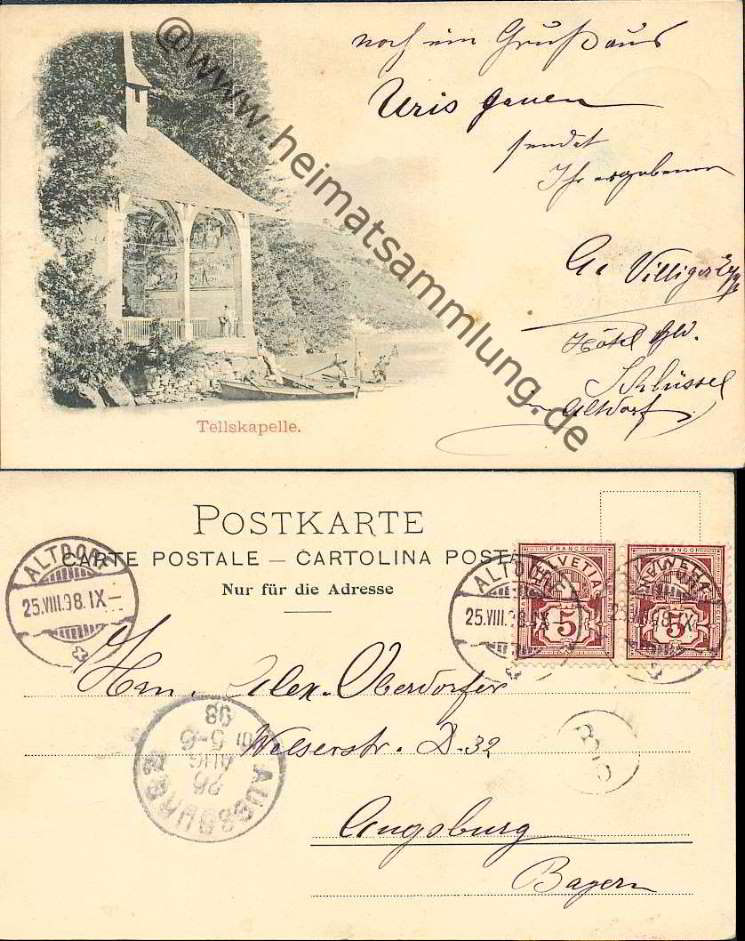 noch ein Gruß aus
Uris Gauen
sendet
Ihr ergebener
Villiger
Hôtel
Schlüssel
Altdorf
Tellskapelle.
@www.heimatsammlung.de
POSTKARTE
CARTE POSTALE — CARTOLINA POST
Nur für die Adresse
ALTDORF
25.VIII.98.IX–
ALTDORF
25.VIII.98.IX
HELVETIA
FRANCO
5
FRANCO
5
25.VIII.98.IX–
Hrn. Alex. Oberdorfer
Welserstr. D-32
Augsburg
Bayern
AUGSBURG
26
AUG
5-6
98